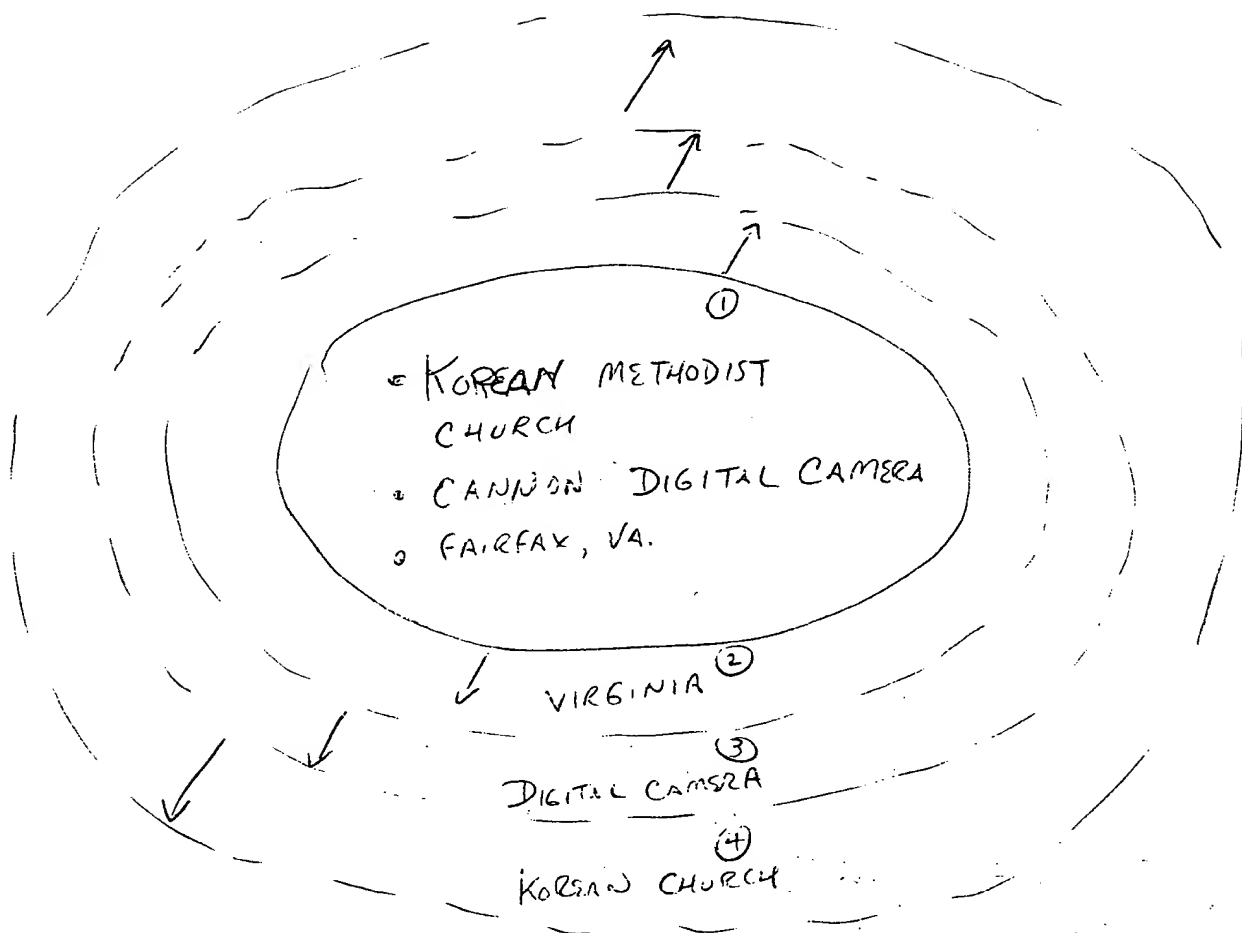 ①
KOREAN METHODIST
CHURCH
CANNON DIGITAL CAMERA
FAIRFAX, VA.
②
VIRGINIA
③
DIGITAL CAMERA
④
KOREAN CHURCH